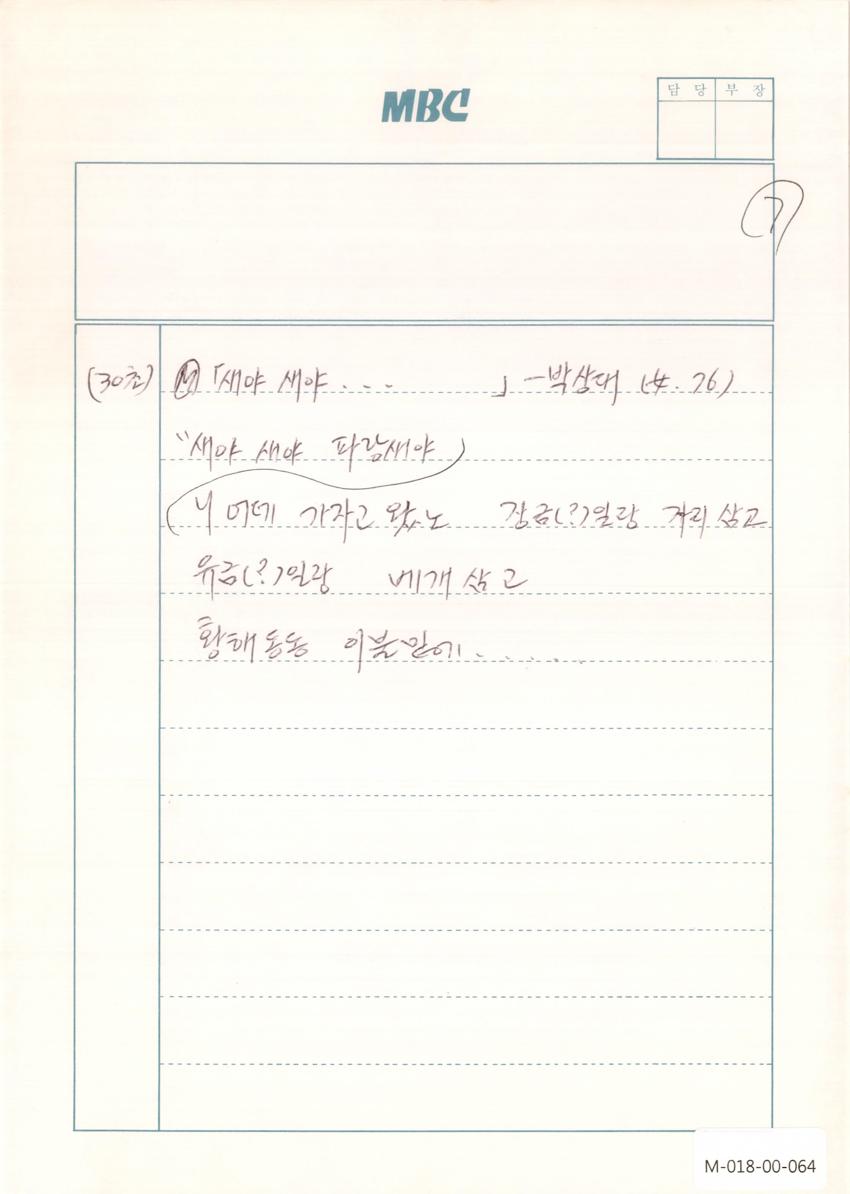 MBC
담 당 부 장
7
(30초) Ⓜ 「새야 새야 . . . 」 -박상대 (女. 76)
"새야 새야 파랑새야
니 어데 가자고 왔노 장금(?)일랑 자리 삼고
유금(?)일랑 베개 삼고
황태동동 이불 밑에 . . . . . .
M-018-00-064